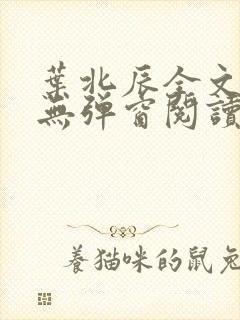 葉北辰全文
無彈窗閱讀
養猫咪的鼠兔